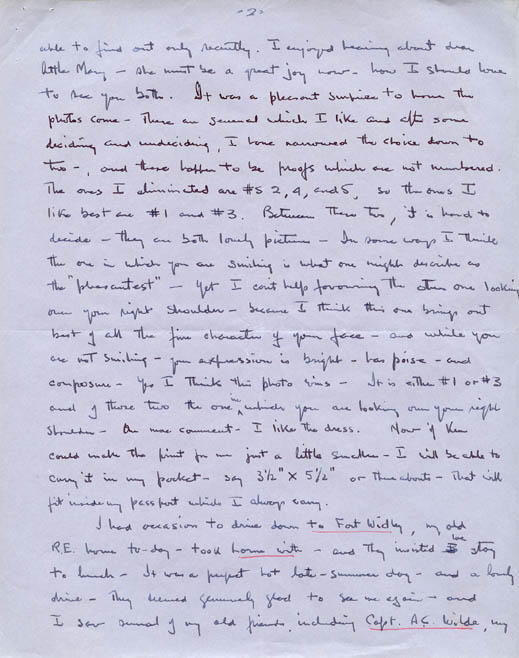 -2-
able to find out only recently. I enjoyed hearing about dear
little Mary - she must be a great joy now - how I should love
to see you both. It was a pleasant surprise to have the
photos come - There are several which I like and after some
deciding and undeciding, I have narrowed the choice down to
two -, and these happen to be proofs which are not numbered.
The ones I eliminated are #s 2, 4, and 5, so the ones I
like best are #1 and #3. Between these two, it is hard to
decide - they are both lovely pictures - In some ways I think
the one in which you are smiling is what one might describe as
the "pleasantest" - yet I can't help favouring the other one looking
over your right shoulder - because I think this one brings out
best of all the fine character of your face - and while you
are not smiling - your expression is bright - has poise - and
composure - Yes I think this photo wins - It is either #1 or #3
and of those two the one in which you are looking over your right
shoulder - One more comment - I like the dress. Now if Ken
could make the print for me just a little smaller - I will be able to
carry it in my pocket - say 3½" x 5½" or thereabouts - That will
fit inside my passport which I always carry.
I had occasion to drive down to Fort Widley, my old
R.E. home to-day - took home with - and they invited me stay
to lunch - It was a perfect hot late-summer day - and a lovely
drive - They seemed genuinely glad to see me again - and
I saw several of my old friends, including Capt. A.C. Wilde, my